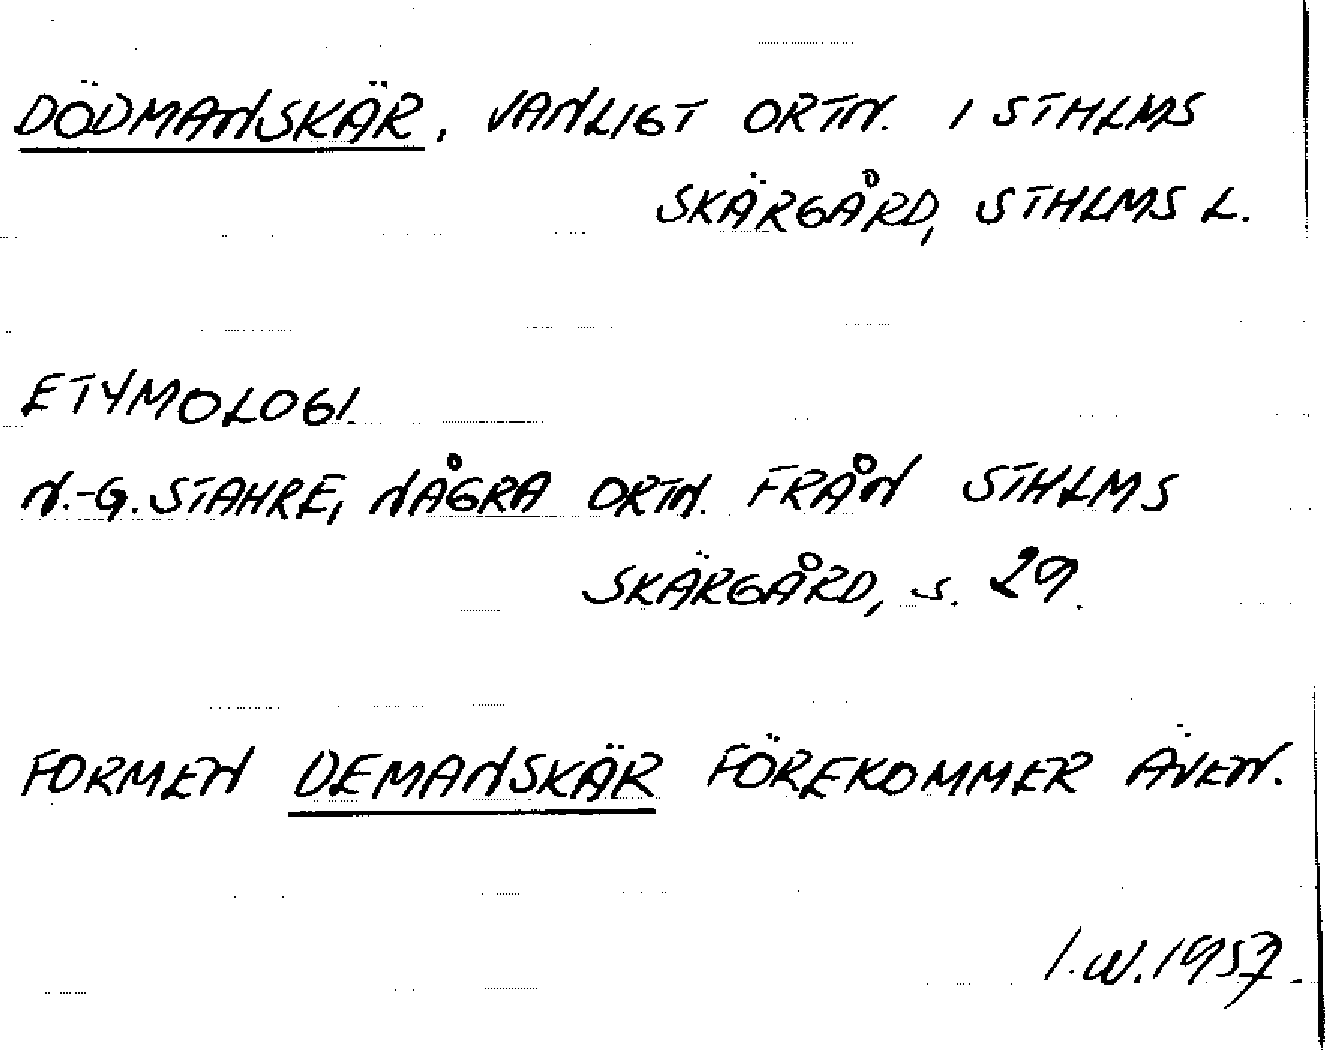 DÖDMANSKÄR, VANLIGT ORTN. I STHLMS
SKÄRGÅRD, STHLMS L.
ETYMOLOGI.
N.-G. STAHRE, NÅGRA ORTN. FRÅN STHLMS
SKÄRGÅRD, S. 29.
FORMEN DEMANSKÄR FÖREKOMMER ÄVEN.
I.W. 1957.